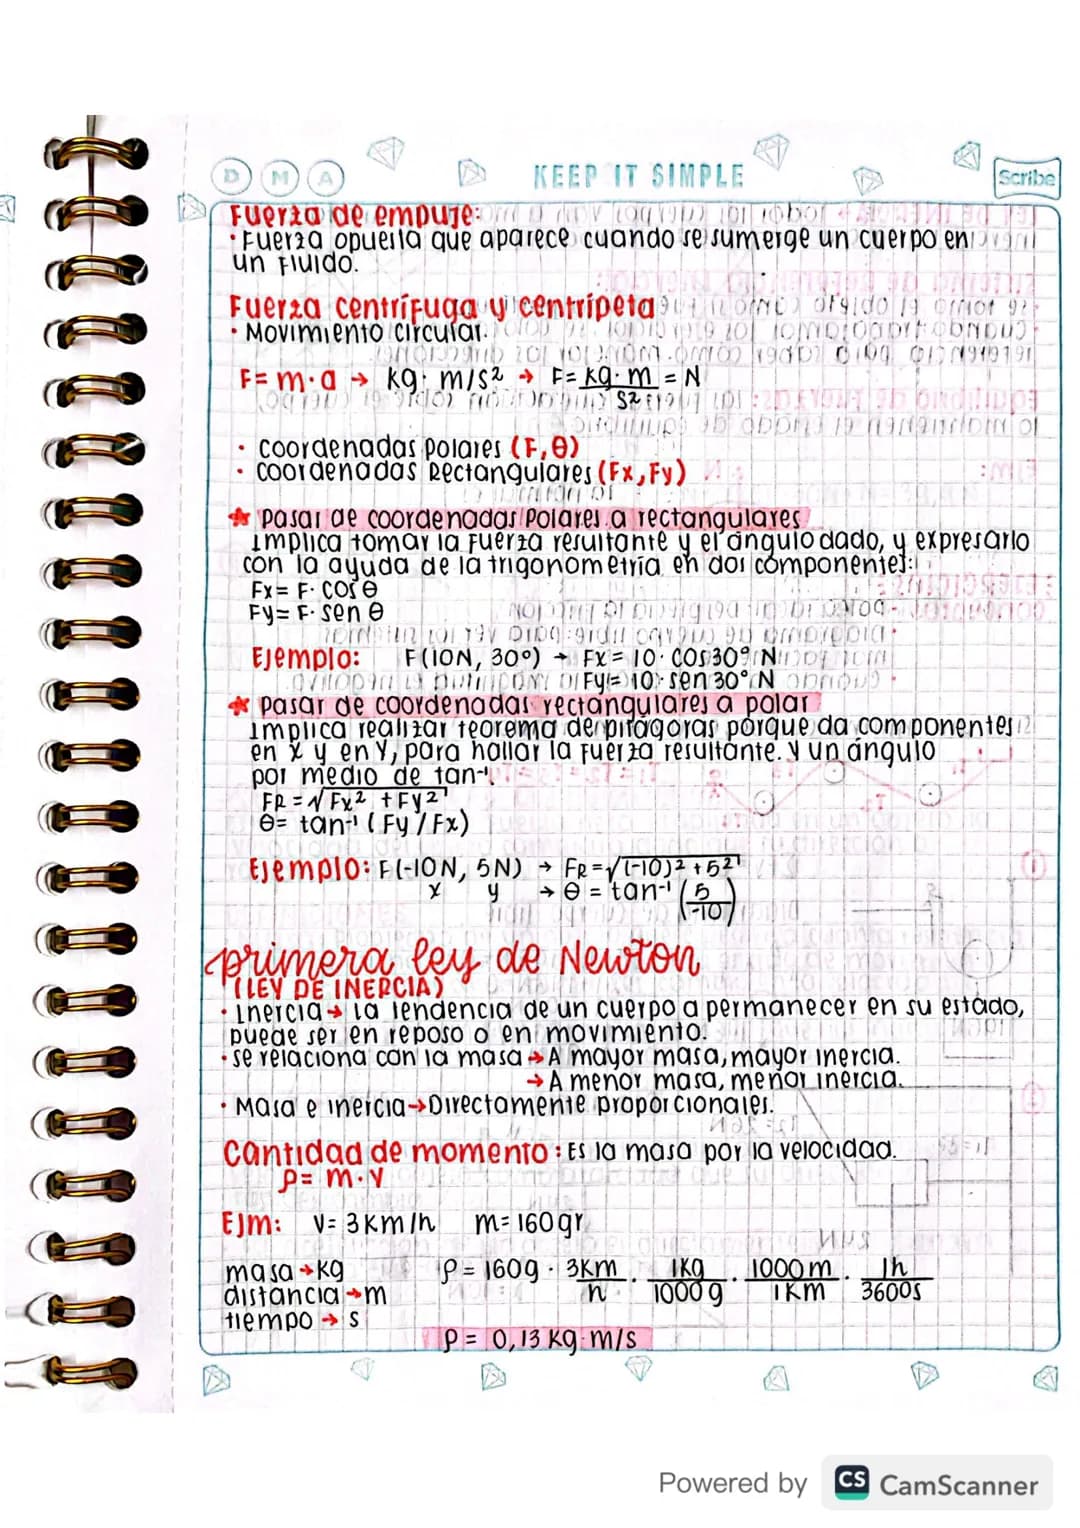 D M A KEEP IT SIMPLE Scribe
Fuerza de empuje:
· Fuerza opuesta que aparece cuando se sumerge un cuerpo en
un fluido.
Fuerza centrífuga y centrípeta
· Movimiento circular.
F= m·a → kg· m/s² → F= kg·m/s² = N
· Coordenadas polares (F,θ)
· Coordenadas Rectangulares (Fx,Fy)
★ Pasar de coordenadas Polares a rectangulares
Implica tomar la fuerza resultante y el ángulo dado, y expresarlo
con la ayuda de la trigonometría en dos componentes:
Fx= F· cos θ
Fy= F· sen θ
Ejemplo: F(10N, 30°) → Fx= 10· cos30° N
Fy= 10· sen 30° N
★ Pasar de coordenadas rectangulares a polar
Implica realizar teorema de pitágoras porque da componentes
en x y en y, para hallar la fuerza resultante. y un ángulo
por medio de tan-¹.
FR = √Fx² + Fy²
θ= tan-¹ (Fy/Fx)
Ejemplo: F(-10N, 5N) → FR=√(-10)² + 5²
x y → θ = tan-¹ (5/-10)
primera ley de Newton
(LEY DE INERCIA)
· Inercia → la tendencia de un cuerpo a permanecer en su estado,
puede ser en reposo o en movimiento.
· se relaciona con la masa → A mayor masa, mayor inercia.
→ A menor masa, menor inercia.
· Masa e inercia → Directamente proporcionales.
Cantidad de momento: Es la masa por la velocidad.
ρ= m·v
Ejm: v= 3 Km/h m= 160 gr
masa → kg ρ= 160g · 3Km/h · 1Kg/1000g · 1000m/1Km · 1h/3600s
distancia → m
tiempo → s
ρ= 0,13 Kg·m/s
Powered by CS CamScanner